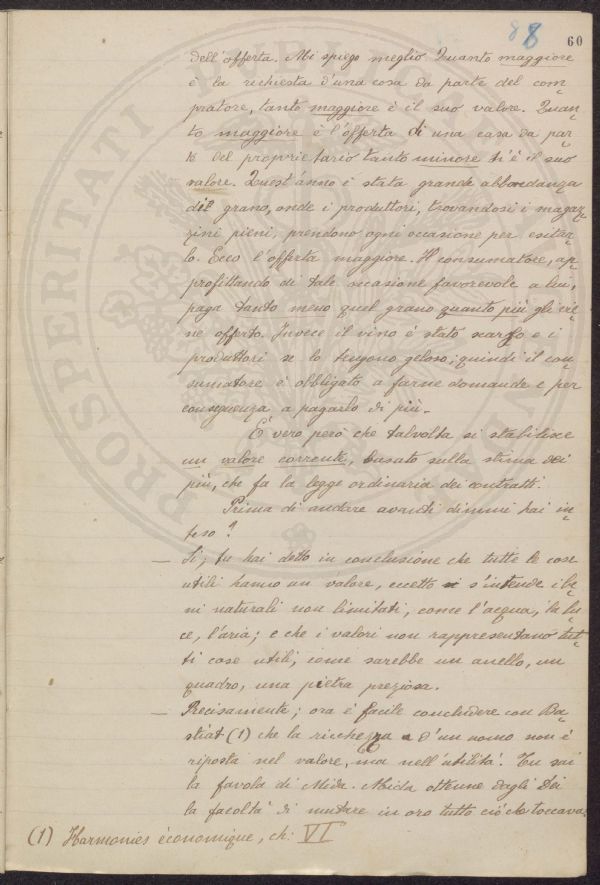 88 60
dell'offerta. Mi spiego meglio. Quanto maggiore
è la richiesta d'una cosa da parte del com-
pratore, tanto maggiore è il suo valore. Quan-
to maggiore è l'offerta di una casa da par-
te del proprietario tanto minore ti è il suo
valore. Quest'anno è stata grande abbondanza
del grano, onde i produttori, trovandosi i magaz-
zini pieni, prendono ogni occasione per esitar-
lo. Ecco l'offerta maggiore. Il consumatore, ap-
profittando di tale occasione favorevole a lui,
paga tanto meno quel grano quanto più gli vie-
ne offerto. Invece il vino è stato scarso e i
produttori se lo tengono geloso; quindi il con-
sumatore è obbligato a farne domande e per
conseguenza a pagarlo di più.
È vero però che talvolta si stabilisce
un valore corrente, basato sulla stima dei
più, che fa la legge ordinaria dei contratti.
Prima di andare avanti dimmi hai in-
teso?
— Si; tu hai detto in conclusione che tutte le cose
utili hanno un valore, eccetto s'intende i be-
ni naturali non limitati, come l'acqua, la lu-
ce, l'aria; e che i valori non rappresentano tut-
ti cose utili, come sarebbe un anello, un
quadro, una pietra preziosa.
— Precisamente; ora è facile concludere con Ba-
stiat (1) che la ricchezza d'un uomo non è
riposta nel valore, ma nell'utilità. Tu sai
la favola di Mida. Mida ottenne dagli Dei
la facoltà di mutare in oro tutto ciò che toccava.
(1) Harmonies économique, ch: VI
PROSPERITATI